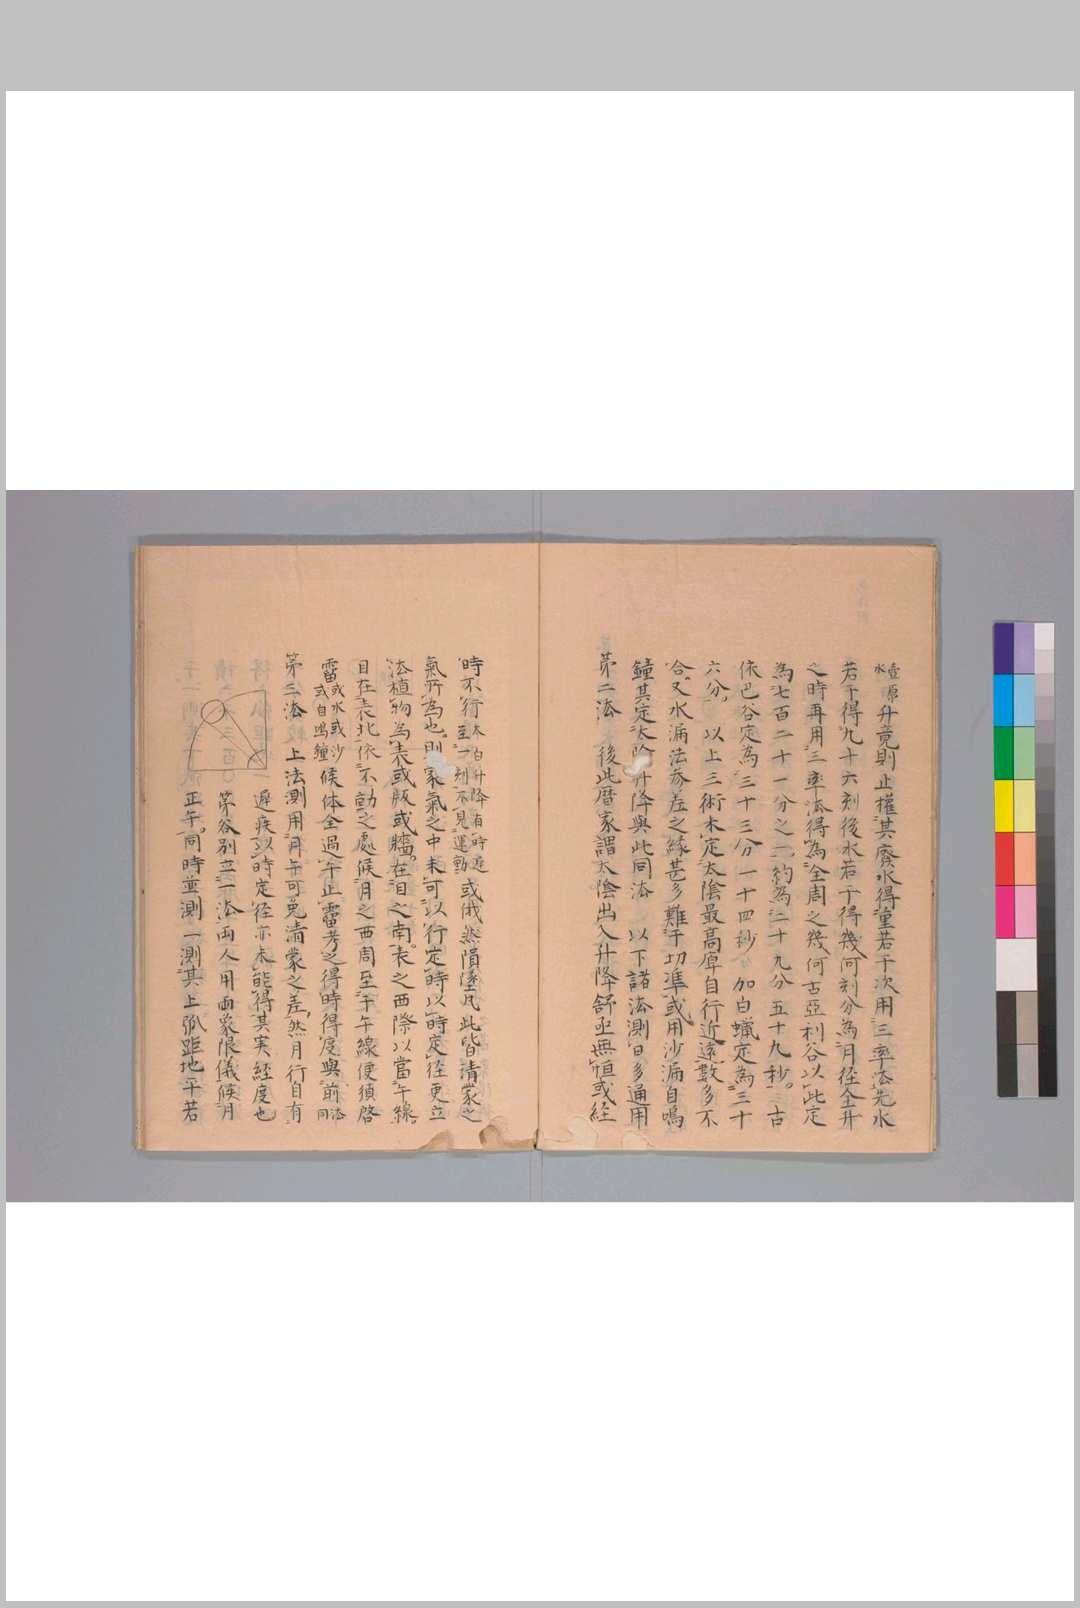 壺水源升竟則止権其廃水得重若干次用三率法先水
若干得九十六刻後水若干得幾何刻分為月径全升
之時再用三率法得為全周之幾何古亞利谷以此定
為七百二十一分之一約為二十九分五十九秒。古
依巴谷定為三十三分一十四秒 加白蠟定為三十
六分。以上三術未定太陰最高庳自行近遠数多不
合又水漏法参差之縁甚多難于切準或用沙漏自鳴
鐘其定太陰升降與此同法 以下諸法測日多通用
第二法 後此暦家謂太陰出入升降舒亟無恒或経
時不行本自升降有時遅至一刻不見運動或俄然隕墜凡此皆清蒙之
氣所為也。則蒙氣之中未可以行定時以時定径更立
法植物為表或版或牆。在目之南。表之西際以當午線。
目在表北依不動之處候月之西周至子午線便須啓
雷或水或沙或自鳴鐘候体全過午止雷考之得時得度與前法同
第三法 上法測用月午可免清蒙之差然月行自有
遅疾以時定径亦未能得其実経度也
第谷別立一法両人用両象限儀候月
正午。同時並測一測其上弧距地平若